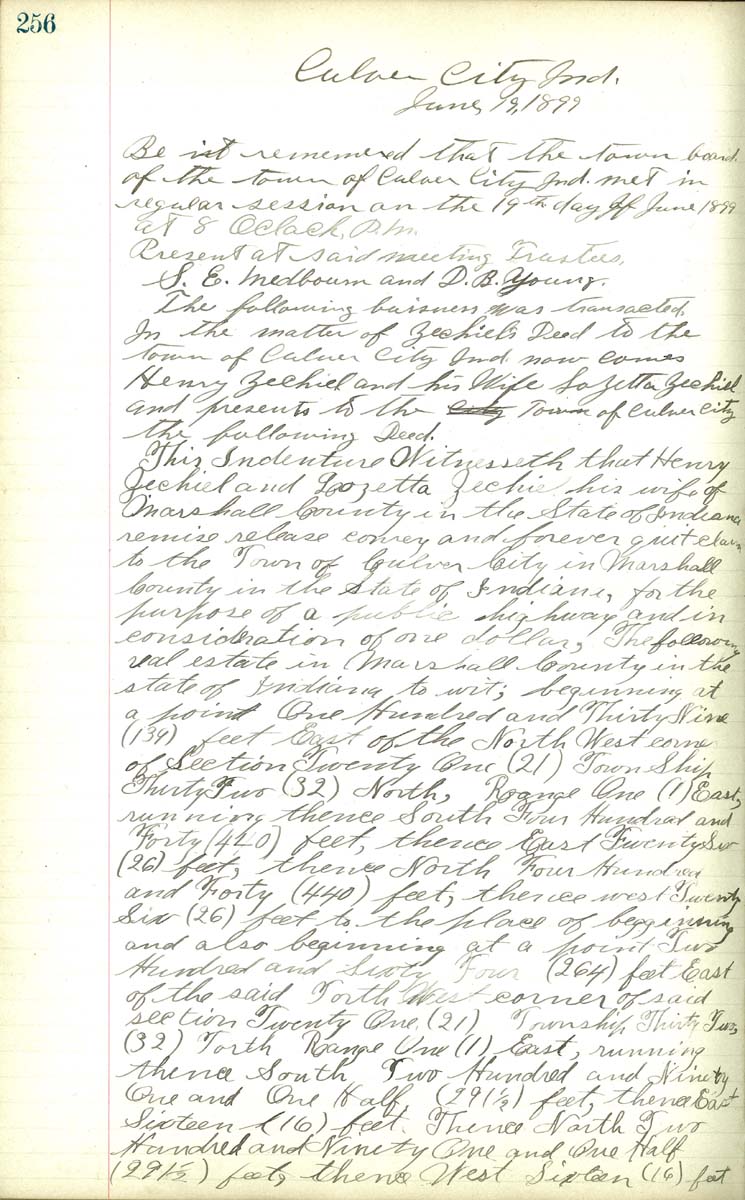 256
Culver City Ind.
June, 19, 1899
Be ist rememered that the town board
of the town of Culver City Ind. met in
regular session on the 19th day of June 1899
at 8 Oclack, P.m.
Present at said meeting Trustees,
S. E. Medbourn and D. B. Young.
The following buisness was transacted.
In the matter of Zechiel's Deed to the
town of Culver City Ind now comes
Henry Zechiel and his Wife Lozetta Zechiel
and presents to the City Town of Culver City
the following Deed.
This Indenture Witnesseth that Henry
Zechiel and Lozetta Zechie his wife of
Marshall County in the State of Indiana
remise release convey and forever quit claim
to the Town of Culver City in Marshall
County in the State of Indiana, for the
purpose of a public highway and in
consideration of one dollar, The following
real estate in Marshall County in the
state of Indiana to wit; beginning at
a point One Hundred and Thirty Nine
(139) feet East of the North West corner
of Section Twenty One (21) Town Ship
Thirty Two (32) North, Range One (1) East,
running thence South Four Hundred and
Forty (440) feet, thence East Twenty Six
(26) feet, thence North Four Hundred
and Forty (440) feet, thence west Twenty
Six (26) feet to the place of beginning
and also beginning at a point Two
Hundred and Sixty Four (264) feet East
of the said Torth West corner of said
section Twenty One (21) Township Thirty Two,
(32) Torth Range One (1) East, running
thence South Two Hundred and Ninety
One and One Half (291½) feet, thence East
Sixteen (16) feet. Thence North Two
Hundred and Ninety One and One Half
(291½) feet, thence West Sixteen (16) feet